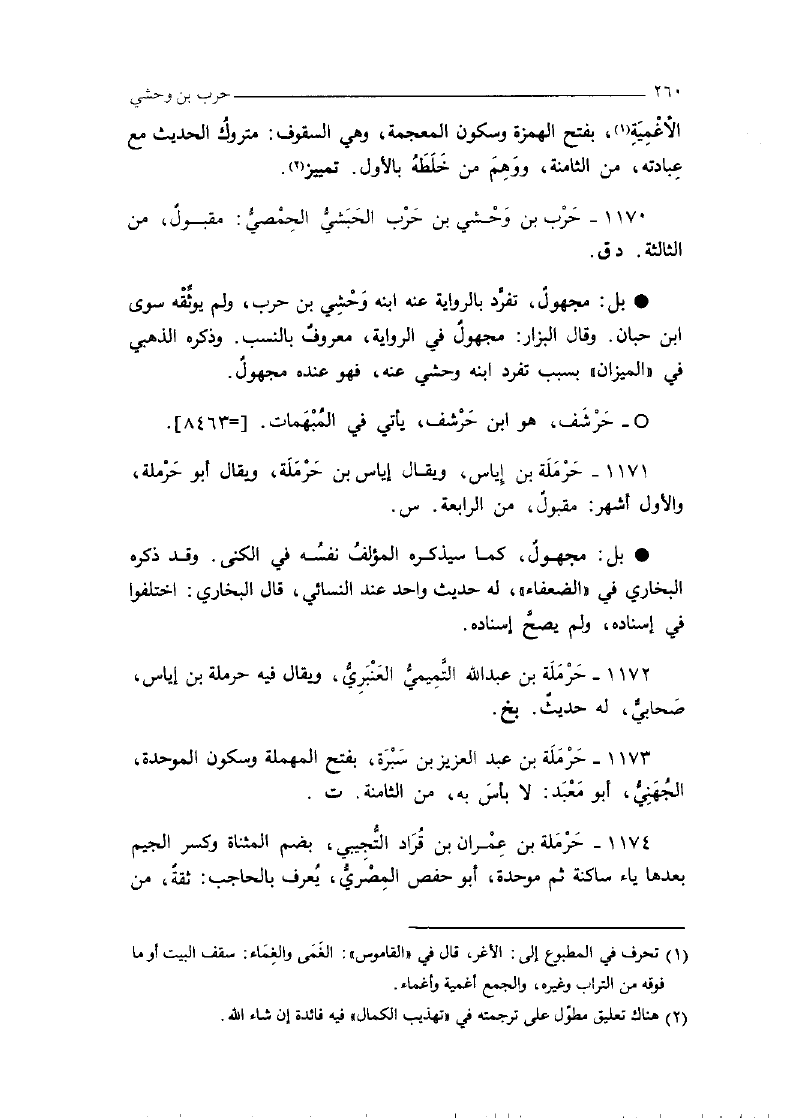 ٢٦٠ حرب بن وحشي
الأغْمِيَةِ(١)، بفتح الهمزة وسكون المعجمة، وهي السقوف: متروكُ الحديث مع
عبادته، من الثامنة، ووَهِمَ من خَلَطَهُ بالأول. تمييز(٢).
١١٧٠ - حَرْب بن وَحْشي بن حَرْب الحَبَشيُّ الحِمْصِيُّ: مقبولٌ، من
الثالثة. د ق.
● بل: مجهولٌ، تفرَّد بالرواية عنه ابنه وَحْشِي بن حرب، ولم يوثِّقْه سوى
ابن حبان. وقال البزار: مجهولٌ في الرواية، معروفٌ بالنسب. وذكره الذهبي
في «الميزان» بسبب تفرد ابنه وحشي عنه، فهو عنده مجهولٌ.
○ - حَرْشَف، هو ابن حَرْشف، يأتي في المُبْهَمات. [=٨٤٦٣].
١١٧١ - حَرْمَلَة بن إِياس، ويقال إياس بن حَرْمَلَة، ويقال أبو حَرْملة،
والأول أشهر: مقبولٌ، من الرابعة. س.
● بل: مجهولٌ، كما سيذكره المؤلفُ نفسُه في الكنى. وقد ذكره
البخاري في «الضعفاء»، له حديث واحد عند النسائي، قال البخاري: اختلفوا
في إسناده، ولم يصحَّ إسناده.
١١٧٢ - حَرْمَلَة بن عبدالله التَّمِيميُّ العَنْبَرِيُّ، ويقال فيه حرملة بن إياس،
صَحابيٌّ، له حديثٌ. بخ.
١١٧٣ - حَرْمَلَة بن عبد العزيز بن سَبْرَة، بفتح المهملة وسكون الموحدة،
الجُهَنِيُّ، أبو مَعْبَد: لا بأسَ به، من الثامنة. ت .
١١٧٤ - حَرْمَلة بن عِمْران بن قُرَاد التُّجِيبي، بضم المثناة وكسر الجيم
بعدها ياء ساكنة ثم موحدة، أبو حفص المِصْريُّ، يُعرف بالحاجب: ثقةٌ، من
(١) تحرف في المطبوع إلى: الأغر، قال في «القاموس»: الغَمَى والغِمَاء: سقف البيت أو ما
فوقه من التراب وغيره، والجمع أغمية وأغماء.
(٢) هناك تعليق مطوّل على ترجمته في «تهذيب الكمال» فيه فائدة إن شاء الله.